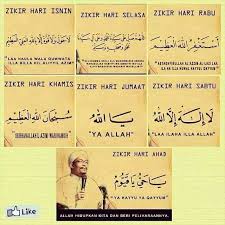 ZIKIR HARI ISNIN
لا حول ولا قوة إلا بالله العلي العظيم
LAA HAULA WALA QUWWATA
ILLA BILLA HIL ALIYYIL AZIM
ZIKIR HARI SELASA
ZIKIR HARI RABU
أستغفر الله العظيم
ZIKIR HARI KHAMIS
سبحان الله العظيم
SUBHANALLAHIL AZIM WABIHAMDIH
ZIKIR HARI JUMAAT
يا الله
"YA ALLAH"
ZIKIR HARI SABTU
لا إله إلا الله
"LAA ILAHA ILLA ALLAH"
ZIKIR HARI AHAD
يا حي يا قيوم
"YA HAYYU YA QAYYUM"
ALLAH HIDUPKAN KITA DAN BERI PELIHARAANNYA.
Like